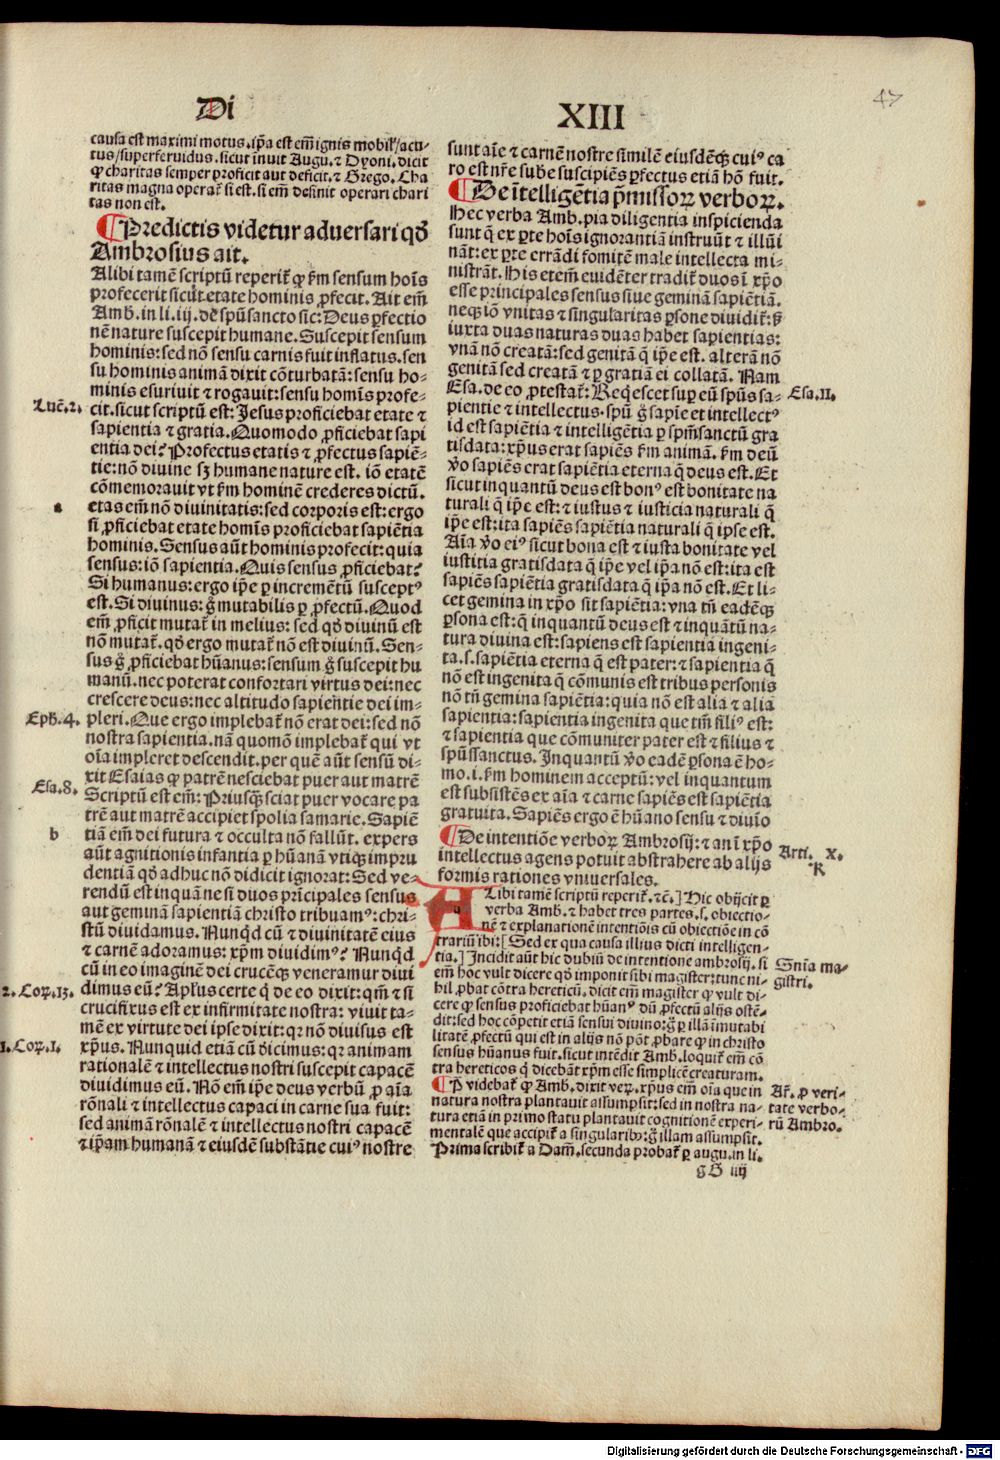 Di
XIII
47
causa est maximi motus. ip̄a est em̄ ignis mobil'/acu-
tus/superferuidus. sicut inuit Augu. ⁊ Dyoni. dicit
ꝙ charitas semper proficit aut deficit. ⁊ Grego. Cha
ritas magna operat̃ si est. si em̄ desinit operari chari
tas non est.
¶Predictis videtur aduersari qđ
Ambrosius ait.
Alibi tamē scriptū reperit̃ ꝙ ẜm sensum hoīs
profecerit sicut etate hominis ꝓfecit. Ait em̄
Amb. in li. iij. de spū sancto sic: Deus ꝑfectio
nē nature suscepit humane. Suscepit sensum
hominis: sed nō sensu carnis fuit inflatus. sen
su hominis animā dixit cōturbatā: sensu ho-
minis esuriuit ⁊ rogauit: sensu homīs profe-
Luč. 2. cit. sicut scriptū est: Jesus proficiebat etate ⁊
sapientia ⁊ gratia. Quomodo ꝓficiebat sapi
entia dei? Profectus etatis ⁊ ꝓfectus sapiē-
tie: nō diuine sꝫ humane nature est. iō etatē
cōmemorauit vt ẜm hominē crederes dictū.
a etas em̄ nō diuinitatis: sed corporis est: ergo
si ꝓficiebat etate homīs proficiebat sapiētia
hominis. Sensus aūt hominis profecit: quia
sensus: iō sapientia. Quis sensus ꝓficiebat?
Si humanus: ergo ip̄e ꝑ incremētū susceptꝰ
est. Si diuinus: ḡ mutabilis ꝑ ꝓfectū. Quod
em̄ ꝓficit mutat̃ in melius: sed qđ diuinū est
nō mutat̃. qđ ergo mutat̃ nō est diuinū. Sen-
sus ḡ ꝓficiebat hūanus: sensum ḡ suscepit hu
manū. nec poterat confortari virtus dei: nec
crescere deus: nec altitudo sapientie dei im-
Eph. 4. pleri. Que ergo implebat̃ nō erat dei: sed nō
nostra sapientia. nā quomō implebat̃ qui vt
oīa impleret descendit. per quē aūt sensū di-
xit Esaias ꝙ patrē nesciebat puer aut matrē
Esa. 8. Scriptū est em̄: Priusꝙ̄ sciat puer vocare pa
trē aut matrē accipiet spolia samarie. Sapiē
b tiā em̄ dei futura ⁊ occulta nō fallūt. expers
aūt agnitionis infantia ꝑ hūanā vtiqꝫ impru
dentiā qđ adhuc nō didicit ignorat: Sed ve-
rendū est inquā ne si duos prīcipales sensus
aut geminā sapientiā christo tribuamꝰ: chri-
stū diuidamus. Nunqđ cū ⁊ diuinitatē eius
⁊ carnē adoramus: xp̄m diuidimꝰ? Nunqđ
cū in eo imaginē dei crucēqꝫ veneramur diui
2. Coꝝ. 13. dimus eū? Apl'us certe q̄ de eo dixit: qm̄ ⁊ si
crucifixus est ex infirmitate nostra: viuit ta-
mē ex virtute dei ipse dixit: qꝛ nō diuisus est
1. Coꝝ. 1. xp̄us. Nunquid etiā cū dicimus: qꝛ animam
rationalē ⁊ intellectus nostri suscepit capacē
diuidimus eū. Nō em̄ ip̄e deus verbū ꝓ aīa
rōnali ⁊ intellectus capaci in carne sua fuit:
sed animā rōnalē ⁊ intellectus nostri capacē
⁊ ip̄am humanā ⁊ eiusdē substātie cuiꝰ nostre
sunt aīe ⁊ carnē nostre sīmilē eiusdēqꝫ cuiꝰ ca
ro est nr̄e sube suscipiēs ꝑfectus etiā hō fuit.
¶De ītelligētia p̄missoꝝ verboꝝ.
Hec verba Amb. pia diligentia inspicienda
sunt q̄ ex ꝑte hoīs ignorantiā instruūt ⁊ illūi
nāt: ex ꝑte errādi fomitē male intellecta mi-
nistrāt. His etem̄ euidēter tradit̃ duos ī xp̄o
esse principales sensus siue geminā sapiētiā.
neqꝫ iō vnitas ⁊ singularitas ꝑsone diuidit̃: ẜꝫ
iuxta duas naturas duas habet sapientias:
vnā nō creatā: sed genitā q̄ ip̄e est. alterā nō
genitā sed creatā ⁊ ꝑ gratiā ei collatā. Nam
Esa. de eo ꝓtestat̃: Reqͥescet suꝑ eū spūs sa- Esa. 11.
pientie ⁊ intellectus. spū ḡ sapie et intellectꝰ
id est sapiētia ⁊ intelligētia ꝑ spm̄sanctū gra
tisdata: xp̄us erat sapiēs ẜm animā. ẜm deū
ꝟo sapiēs erat sapiētia eterna q̄ deus est. Et
sicut inquantū deus est bonꝰ est bonitate na
turali q̄ ip̄e est: ⁊ iustus ⁊ iusticia naturali q̄
ip̄e est: ita sapiēs sapiētia naturali q̄ ipse est.
Aīa ꝟo eiꝰ sicut bona est ⁊ iusta bonitate vel
iustitia gratisdata q̄ ip̄e vel ip̄a nō est: ita est
sapiēs sapiētia gratisdata q̄ ip̄a nō est. Et li-
cet gemina in xp̄o sit sapiētia: vna tn̄ eadēqꝫ
ꝑsona est: q̄ inquantū deus est ⁊ inquātū na-
tura diuina est: sapiens est sapientia ingeni-
ta. s. sapiētia eterna q̄ est pater: ⁊ sapientia q̄
nō est ingenita q̄ cōmunis est tribus personis
nō tn̄ gemina sapiētia: quia nō est alia ⁊ alia
sapientia: sapientia ingenita que tm̄ filiꝰ est:
⁊ sapientia que cōmuniter pater est ⁊ filius ⁊
spūssanctus. Inquantū ꝟo eadē ꝑsona ē ho-
mo. i. ẜm hominem acceptū: vel inquantum
est subsistēs ex aīa ⁊ carne sapiēs est sapientia
gratuita. Sapiēs ergo ē hūano sensu ⁊ diuīo
¶De intentiōe verboꝝ Ambrosij: ⁊ an ī xp̄o Arti. X.
intellectus agens potuit abstrahere ab alijs K
formis rationes vniuersales.
ALibi tamē scriptū reperit̃. ⁊č. ] Hic obijcit ꝑ
verba Amb. ⁊ habet tres partes. s. obiectio-
nē ⁊ explanationē intentiōis cū obiectiōe in cō
trariū ibi: [ Sed ex qua causa illius dicti intelligen-
tia. ] Incidit aūt hic dubiū de intentione ambrosij. si Snīa ma-
em̄ hoc vult dicere qđ imponit sibi magister: tunc ni- gistri.
hil ꝓbat cōtra hereticū. dicit em̄ magister ꝙ vult di-
cere ꝙ sensus proficiebat hūanꝰ dū ꝓfectū alijs ostē-
dit: sed hoc cōpetit etiā sensui diuino: ḡ ꝑ illā īmutabi
litatē ꝓfectū qui est in alijs nō pōt ꝓbare ꝙ in christo
sensus hūanus fuit. sicut intēdit Amb. loquit̃ em̄ cō
tra hereticos q̄ dicebāt xp̄m esse simplicē creaturam.
¶P̄ videbat̃ ꝙ Amb. dixit veꝝ. xp̄us em̄ oīa que in Ar̃. ꝓ veri-
natura nostra plantauit assumpsit: sed in nostra na- tate verbo-
tura etiā in primo statu plantauit cognitionē experi- rū Ambro.
mentalē que accipit̃ a singularibꝰ: ḡ illam assumpsit.
Prima scribit̃ a Dam̄. secunda probat̃ ꝑ augu. in li.
gG iiij
Digitalisierung gefördert durch die Deutsche Forschungsgemeinschaft - DFG